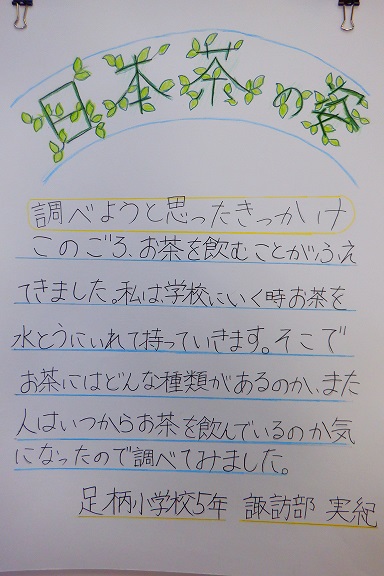 日本茶の姿
調べようと思ったきっかけ
このごろ、お茶を飲むことがふえ
てきました。私は、学校にいく時お茶を
水とうにいれて持っていきます。そこで
お茶にはどんな種類があるのか、また
人はいつからお茶を飲んでいるのか気
になったので調べてみました。
足柄小学校5年 諏訪部 実紀